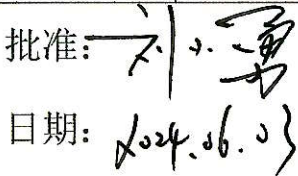 批准：刘小勇
日期：2024.06.03